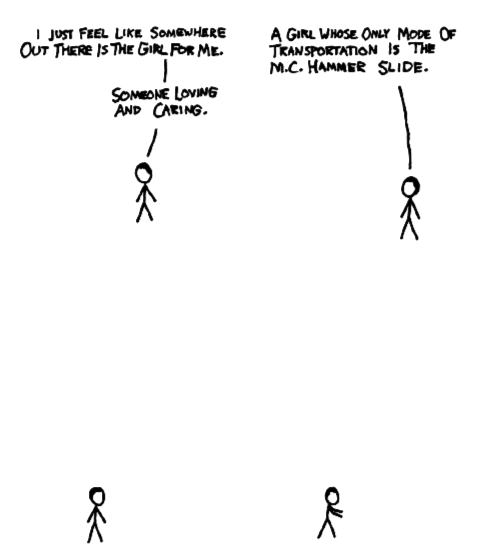 I JUST FEEL LIKE SOMEWHERE
OUT THERE IS THE GIRL FOR ME.
SOMEONE LOVING
AND CARING.
A GIRL WHOSE ONLY MODE OF
TRANSPORTATION IS THE
M.C. HAMMER SLIDE.